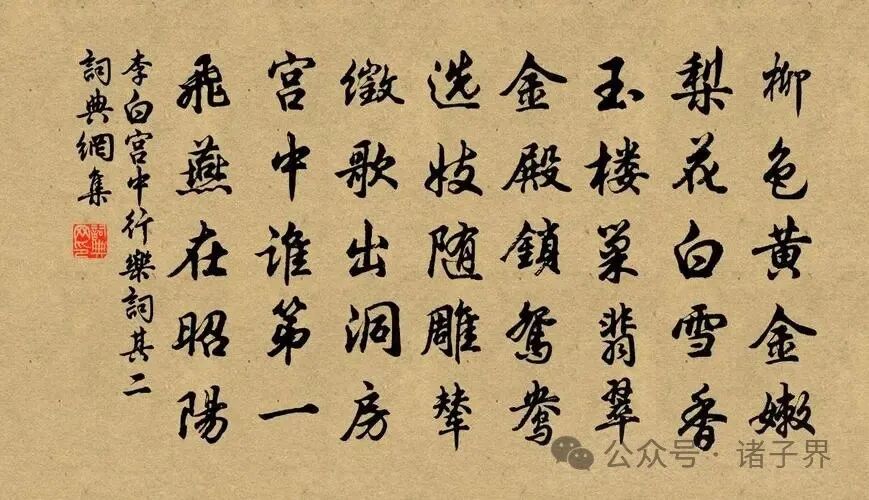 柳色黄金嫩
梨花白雪香
玉楼巢翡翠
金殿鎖鴛鴦
选妓随雕辇
徵歌出洞房
宫中谁第一
飛燕在昭陽
李白宫中行樂詞其二
詞典網集
公众号·诸子界